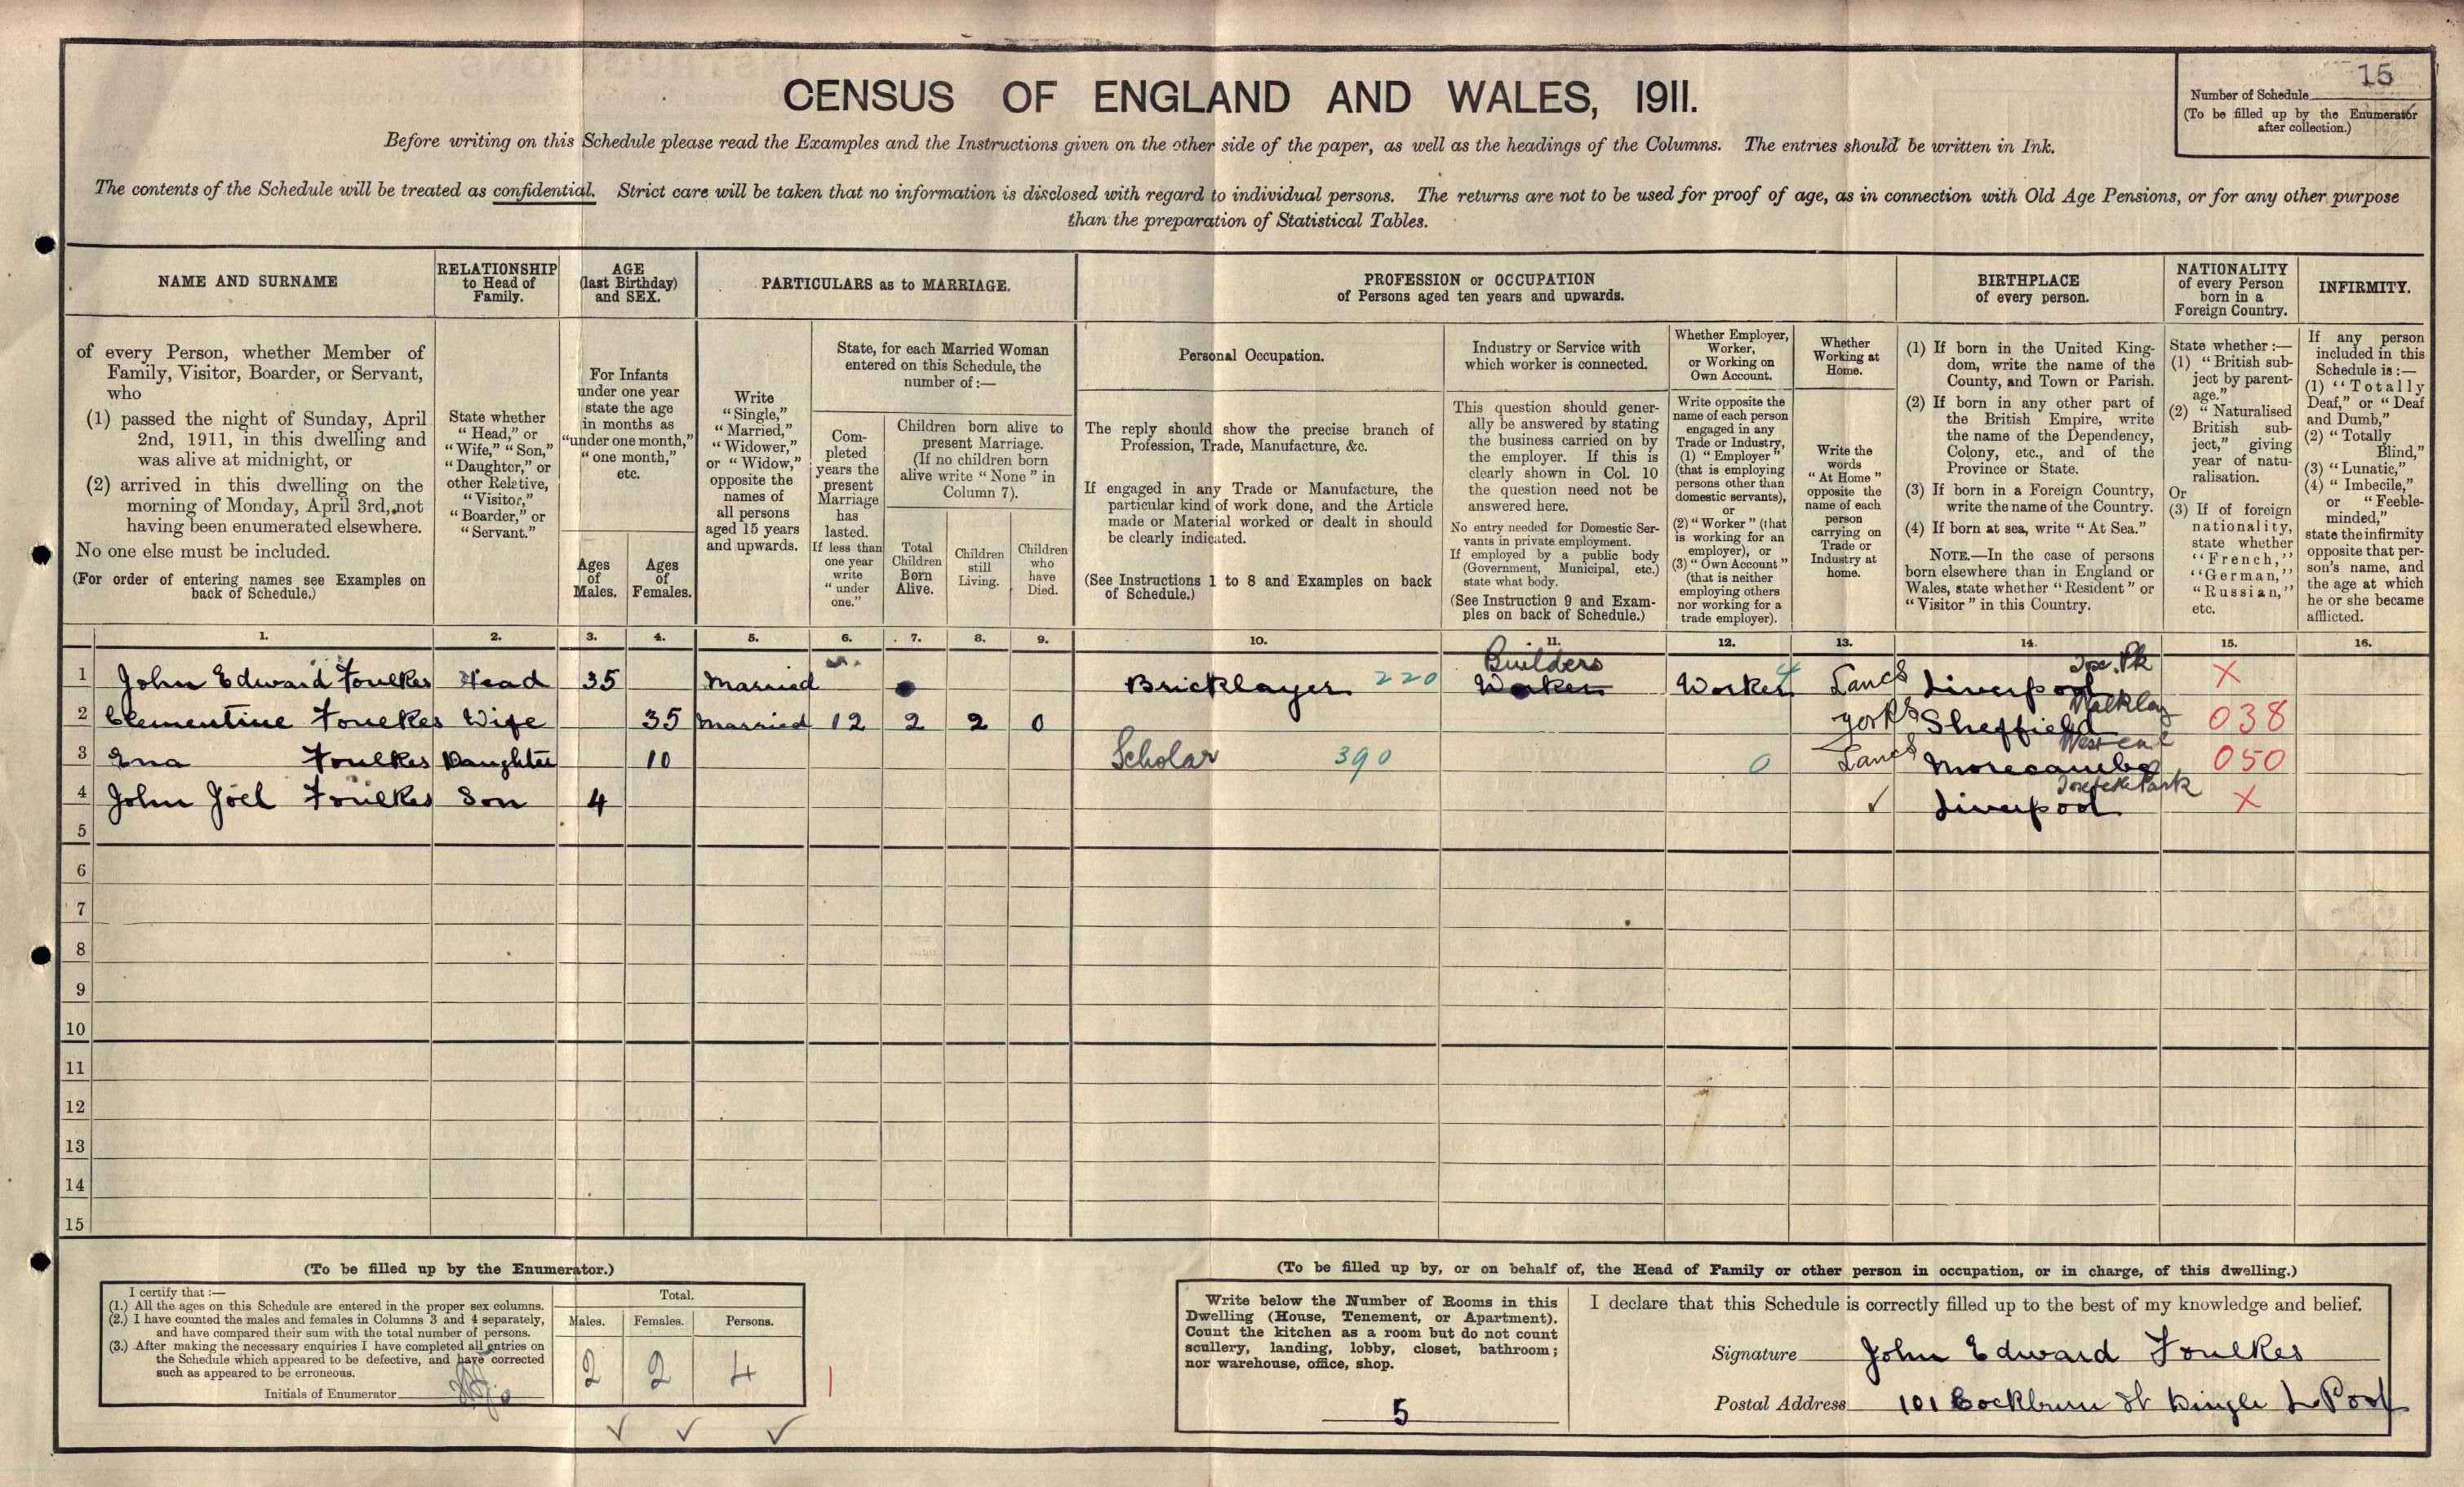 CENSUS OF ENGLAND AND WALES, 1911.
15
Number of Schedule
(To be filled up by the Enumerator
after collection.)
Before writing on this Schedule please read the Examples and the Instructions given on the other side of the paper, as well as the headings of the Columns. The entries should be written in Ink.
The contents of the Schedule will be treated as confidential. Strict care will be taken that no information is disclosed with regard to individual persons. The returns are not to be used for proof of age, as in connection with Old Age Pensions, or for any other purpose
than the preparation of Statistical Tables.
NAME AND SURNAME
RELATIONSHIP
to Head of
Family.
AGE
(last Birthday)
and SEX.
PARTICULARS as to MARRIAGE.
PROFESSION or OCCUPATION
of Persons aged ten years and upwards.
BIRTHPLACE
of every person.
NATIONALITY
of every Person
born in a
Foreign Country.
INFIRMITY.
of every Person, whether Member of
Family, Visitor, Boarder, or Servant,
who
(1) passed the night of Sunday, April
2nd, 1911, in this dwelling and
was alive at midnight, or
(2) arrived in this dwelling on the
morning of Monday, April 3rd, not
having been enumerated elsewhere.
No one else must be included.
(For order of entering names see Examples on
back of Schedule.)
State whether
"Head," or
"Wife," "Son,"
"Daughter," or
other Relative,
"Visitor,"
"Boarder," or
"Servant."
For Infants
under one year
state the age
in months as
"under one month,"
"one month,"
etc.
Ages
of
Males.
Ages
of
Females.
Write
"Single,"
"Married,"
"Widower,"
or "Widow,"
opposite the
names of
all persons
aged 15 years
and upwards.
State, for each Married Woman
entered on this Schedule, the
number of:—
Com-
pleted
years the
present
Marriage
has
lasted.
If less than
one year
write
"under
one."
Children born alive to
present Marriage.
(If no children born
alive write "None" in
Column 7).
Total
Children
Born
Alive.
Children
still
Living.
Children
who
have
Died.
Personal Occupation.
The reply should show the precise branch of
Profession, Trade, Manufacture, &c.
If engaged in any Trade or Manufacture, the
particular kind of work done, and the Article
made or Material worked or dealt in should
be clearly indicated.
(See Instructions 1 to 8 and Examples on back
of Schedule.)
Industry or Service with
which worker is connected.
This question should gener-
ally be answered by stating
the business carried on by
the employer. If this is
clearly shown in Col. 10
the question need not be
answered here.
No entry needed for Domestic Ser-
vants in private employment.
If employed by a public body
(Government, Municipal, etc.)
state what body.
(See Instruction 9 and Exam-
ples on back of Schedule.)
Whether Employer,
Worker,
or Working on
Own Account.
Write opposite the
name of each person
engaged in any
Trade or Industry,
(1) "Employer"
(that is employing
persons other than
domestic servants),
or
(2) "Worker" (that
is working for an
employer), or
(3) "Own Account"
(that is neither
employing others
nor working for a
trade employer).
Whether
Working at
Home.
Write the
words
"At Home"
opposite the
name of each
person
carrying on
Trade or
Industry at
home.
(1) If born in the United King-
dom, write the name of the
County, and Town or Parish.
(2) If born in any other part of
the British Empire, write
the name of the Dependency,
Colony, etc., and of the
Province or State.
(3) If born in a Foreign Country,
write the name of the Country.
(4) If born at sea, write "At Sea."
NOTE.—In the case of persons
born elsewhere than in England or
Wales, state whether "Resident" or
"Visitor" in this Country.
State whether:—
(1) "British sub-
ject by parent-
age."
(2) "Naturalised
British sub-
ject," giving
year of natu-
ralisation.
Or
(3) If of foreign
nationality,
state whether
"French,"
"German,"
"Russian,"
etc.
If any person
included in this
Schedule is:—
(1) "Totally
Deaf," or "Deaf
and Dumb,"
(2) "Totally
Blind,"
(3) "Lunatic,"
(4) "Imbecile,"
or "Feeble-
minded,"
state the infirmity
opposite that per-
son's name, and
the age at which
he or she became
afflicted.
1. 2. 3. 4. 5. 6. 7. 8. 9. 10. 11. 12. 13. 14. 15. 16.
Builders Tox. Pk
1 John Edward Foulkes Head 35 Married Bricklayer 220 Worker Worker Lancs Liverpool X
Walkley
2 Clementine Foulkes Wife 35 Married 12 2 2 0 Yorks Sheffield 038
West end
3 Ena Foulkes Daughter 10 Scholar 390 0 Lancs Morecambe 050
Toxteth Park
4 John Joel Foulkes Son 4 ✓ Liverpool X
5
6
7
8
9
10
11
12
13
14
15
(To be filled up by the Enumerator.)
I certify that:—
(1.) All the ages on this Schedule are entered in the proper sex columns.
(2.) I have counted the males and females in Columns 3 and 4 separately,
and have compared their sum with the total number of persons.
(3.) After making the necessary enquiries I have completed all entries on
the Schedule which appeared to be defective, and have corrected
such as appeared to be erroneous.
Initials of Enumerator
Total.
Males. Females. Persons.
2 2 4
✓ ✓ ✓
(To be filled up by, or on behalf of, the Head of Family or other person in occupation, or in charge, of this dwelling.)
Write below the Number of Rooms in this
Dwelling (House, Tenement, or Apartment).
Count the kitchen as a room but do not count
scullery, landing, lobby, closet, bathroom;
nor warehouse, office, shop.
5
I declare that this Schedule is correctly filled up to the best of my knowledge and belief.
Signature John Edward Foulkes
Postal Address 101 Cockburn St Dingle L Pool